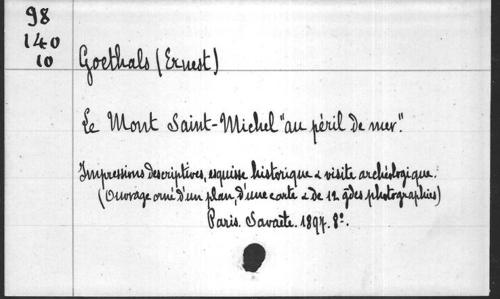 98
140
10
Goethals (Ernest)
Le Mont Saint-Michel "au péril de mer".
Impressions descriptives, esquisse historique & visite archéologique.
(Ouvrage orné d'un plan, d'une carte & de 12 gdes photographies)
Paris. Savaète. 1897. 8º.